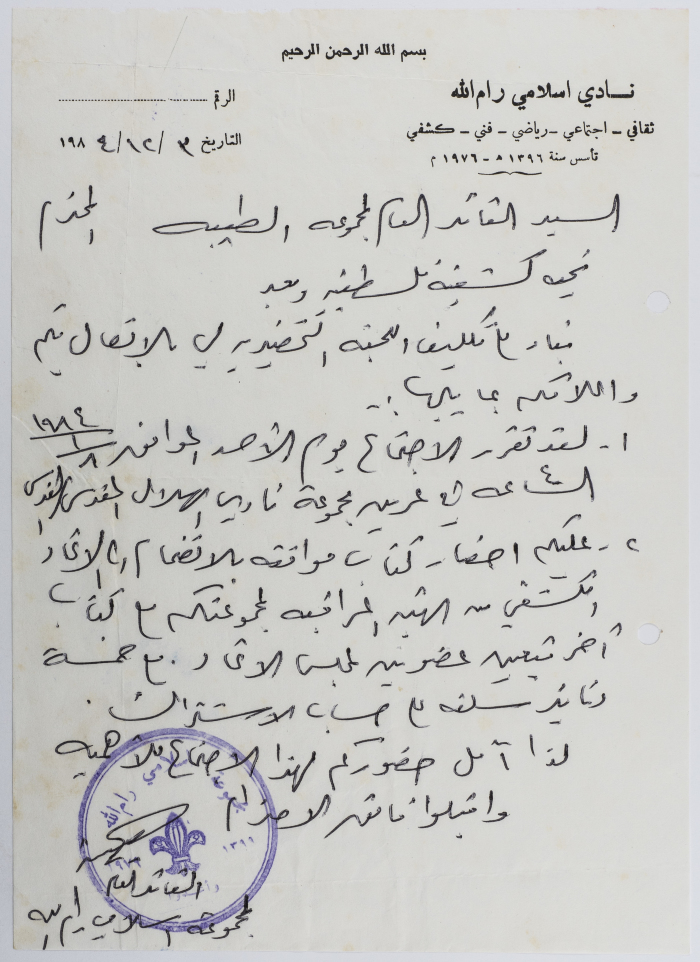 بسم الله الرحمن الرحيم
نادي اسلامي رام الله
ثقافي - اجتماعي - رياضي - فني - كشفي
تأسس سنة ١٣٩٦ هـ - ١٩٧٦ م
الرقم
التاريخ ٣ / ١٢ / ١٩٨٤
السيد القائد العام لمجموعه الطيبه المحترم
تحيه كشفية فلسطينيه وبعد
بناء ع تكليف اللجنه التحضيريه لي بالاتصال بكم
وابلاغكم بما يلي :-
١- لقد تقرر الاجتماع يوم الأحد الموافق
الساعه ٤ في عرين مجموعة نادي الهلال المقدسي القدس
٢- عليكم احضار كتاب موافقه بالانضمام الى الاتحاد
الكشفي من الهيئه لمجموعتكم مع كتاب
آخر تعيين عضوين لمجلس الاتحاد. مع خمسة
دنانير سلفه ع حساب الاشتراك.
لذا آمل حضوركم لهذا الاجتماع للأهميه
واقبلوا فائق الاحترام
القائد العام
لمجموعة اسلامي رام الله
مجموعة اسلامي رام الله
١٣٩٦